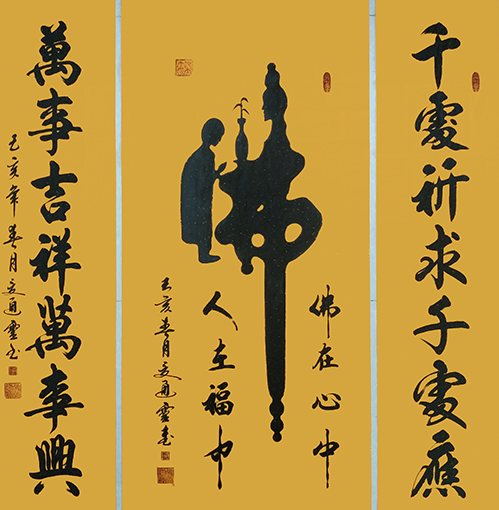 千處祈求千處應
佛
佛在心中
人在福中
己亥春月
萬事吉祥萬事興
己亥年春月